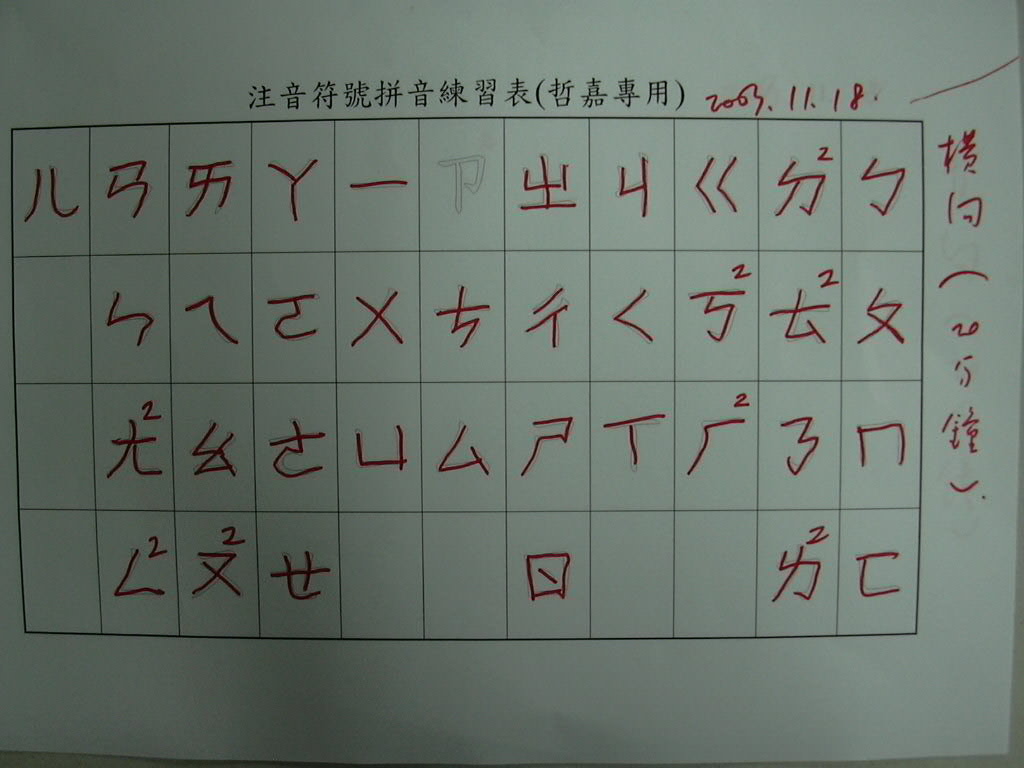 注音符號拼音練習表(哲嘉專用) 2003.11.18.
ㄦ ㄢ ㄞ ㄚ ㄧ ㄗ ㄓ ㄐ ㄍ ㄉ2 ㄅ
ㄣ ㄟ ㄛ ㄨ ㄘ ㄔ ㄑ ㄎ2 ㄊ2 ㄆ
ㄤ2 ㄠ ㄜ ㄩ ㄙ ㄕ ㄒ ㄏ2 ㄋ ㄇ
ㄥ2 ㄡ2 ㄝ ㄖ ㄌ2 ㄈ
橫向(20分鐘).